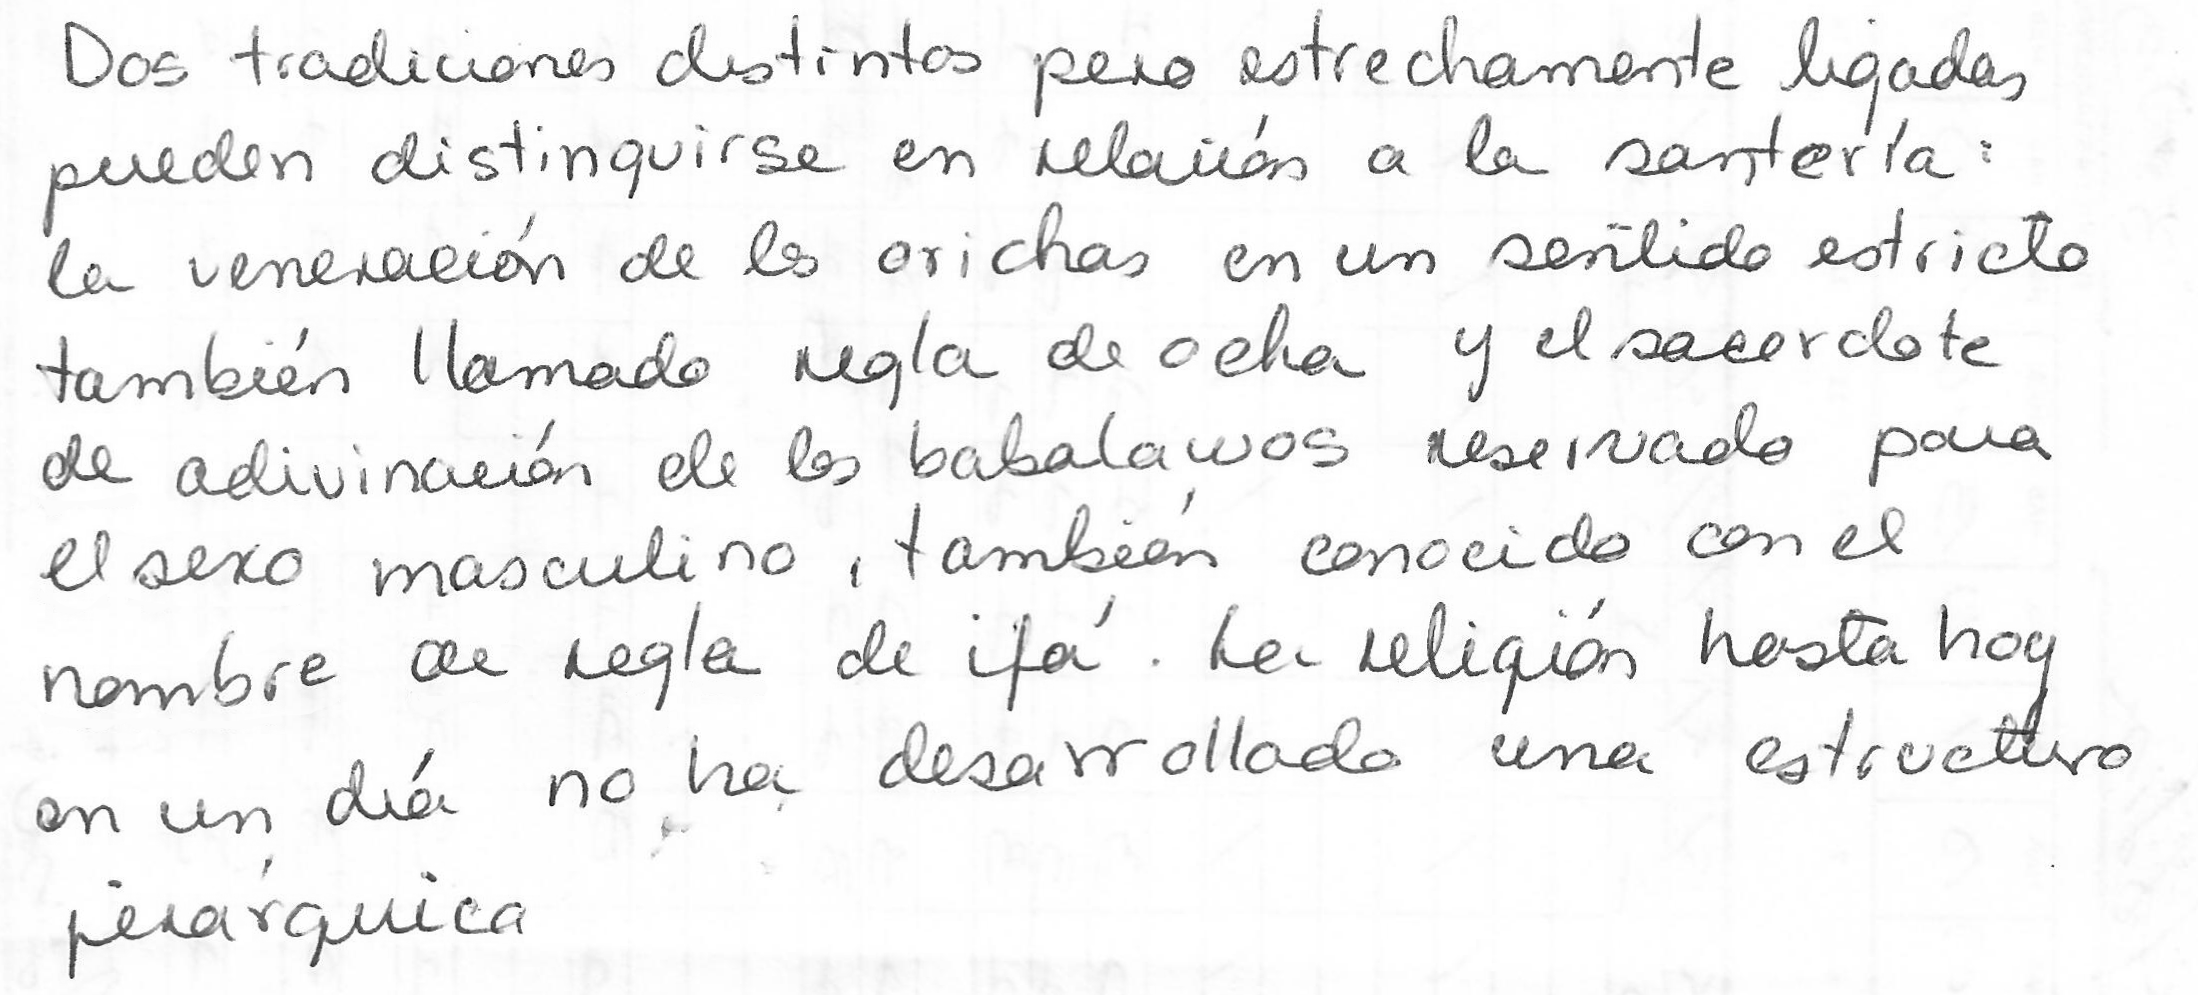 Dos tradiciones distintas pero estrechamente ligadas
pueden distinguirse en relación a la santería:
la veneración de los orichas en un sentido estricto
también llamado regla de ocha y el sacerdote
de adivinación de los babalawos reservado para
el sexo masculino, también conocido con el
nombre de regla de ifá. La religión hasta hoy
en un día no ha desarrollado una estructura
jerárquica